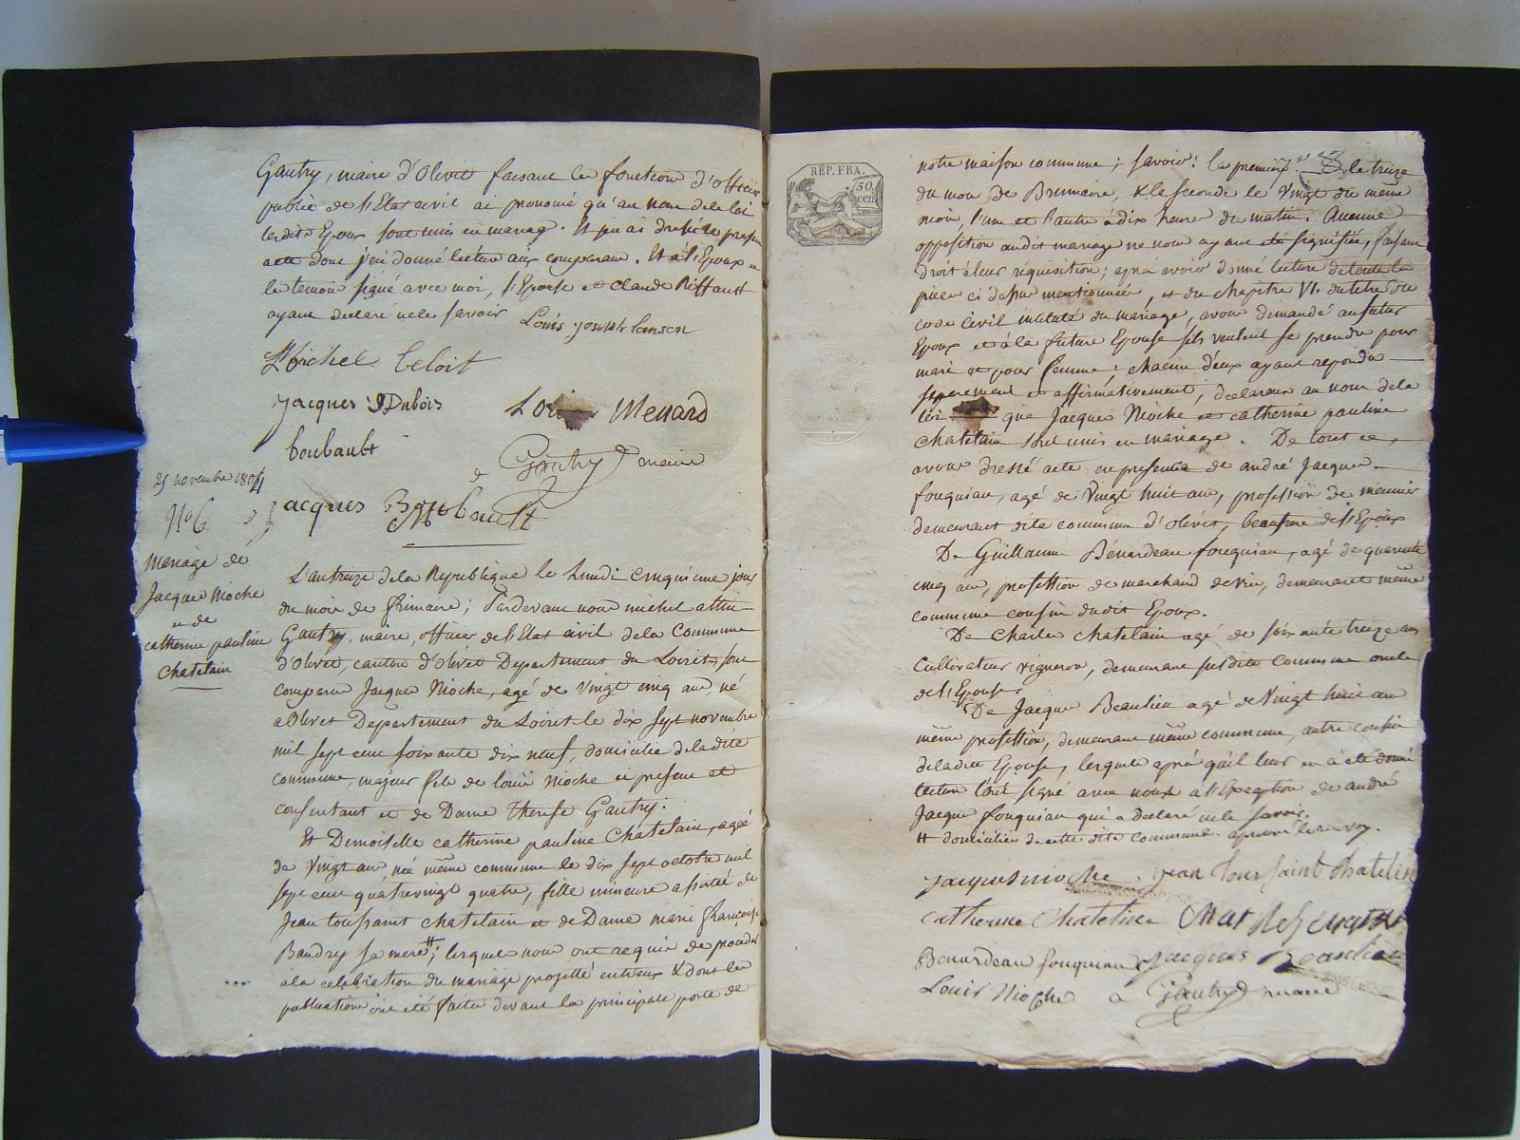 Gautry, maire d'Olivet faisant les fonctions d'officier
public de l'Etat civil ai prononcé qu'au nom de la loi
lesdits Epoux sont unis en mariage. Et j'en ai dressé le present
acte dont j'ai donné lecture aux comparans. Et à l'Epoux
les temoins signé avec moi, l'Epouse et Claude Riffault
ayant declaré ne le savoir
Louis joseph
Michel Beloit
Jacques Dubois
Menard
boubault
Gautry maire
Jacques
25 novembre 1804
No 6
Mariage de
Jacques Nioche
et de
catherine pauline
Chatelain
L'an treize de la Republique le Lundi cinquieme jour
du mois de frimaire; Pardevant nous michel
Gautry, maire, officier de l'Etat civil de la Commune
d'Olivet, canton d'Olivet Departement du Loiret sont
comparus Jacques Nioche, agé de vingt cinq ans, né
a Olivet Departement du Loiret le dix sept novembre
mil sept cent soixante dix neuf, domicilié de la dite
commune, majeur fils de louis Nioche ci present et
consentant et de Dame therese Gautry.
Et Demoiselle catherine pauline Chatelain, agée
de vingt ans, née même commune le dix sept octobre mil
sept cent quatrevingt quatre, fille mineure assistée de
Jean toussaint chatelain et de Dame marie françoise
Baudry sa mere #; lesquels nous ont requis de proceder
à la celebration du mariage projetté entre eux & dont les
publications ont été faites devant la principale porte de
REP. FRA.
50
cen
notre maison commune; savoir: la premiere le treize
du mois de Brumaire, & la seconde le vingt du même
mois, l'une et l'autre à dix heures du matin. Aucune
opposition audit mariage ne nous ayant été signifiée, faisant
droit à leur réquisition; après avoir donné lecture de toutes les
pieces ci dessus mentionnées, et du chapitre VI. du titre du
code Civil intitulé du mariage, avons demandé au futur
Epoux et à la future Epouse s'ils veulent se prendre pour
mari et pour femme; chacun d'eux ayant repondu
separement et affirmativement, declarons au nom de la
loi que Jacques Nioche et catherine pauline
chatelain sont unis en mariage. De tout ce,
avons dressé acte en presence de andré Jacques
fouquiau, agé de vingt huit ans, profession de meunier
demeurant dite commune d'olivet, beaufrere de l'Epoux
De Guillaume Bénardeau fouquiau, agé de quarante
cinq ans, profession de marchand de vin, demeurant même
commune cousin dudit Epoux.
De Charles chatelain agé de soixante treize ans
Cultivateur vigneron, demeurant susdite commune oncle
de l'Epouse.
De Jacques Beaulieu agé de vingt huit ans
même profession, demeurant même commune, autre cousin
de ladite Epouse, lesquels après qu'il leur en à été donné
lecture l'ont signé avec nous à l'exception de andré
Jacques fouquiau qui a declaré ne le savoir.
# domiciliés de cette dite commune. approuvé le renvoy.
jacques nioche jean Toussaint Chatelin
catherine Chateline
Benardeau fouquiau Jacques Beaulieu
Louis Nioche Gautry maire